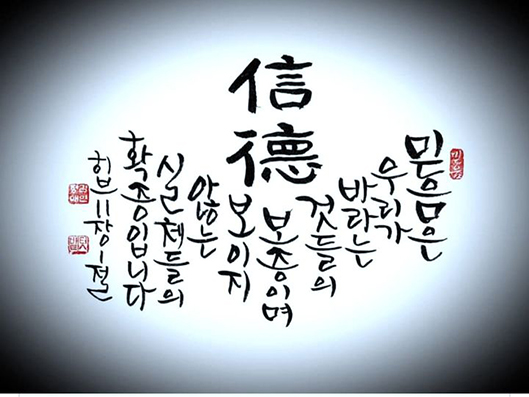 信
德
믿음은
우리가
바라는
것들의
보증이며
보이지
않는
실체들의
확증입니다
히브11장1절